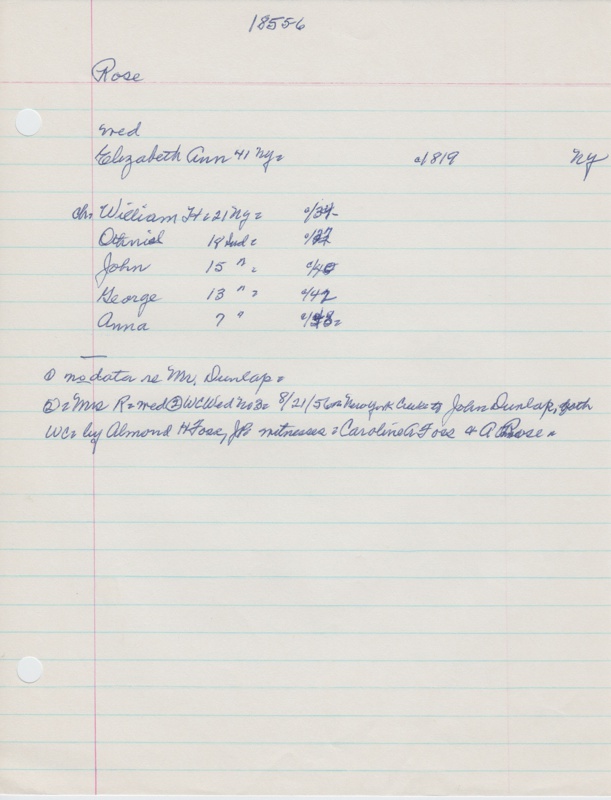 1855-6
Rose
wed
Elizabeth Ann 41 Ny= c/1819 Ny
ch, William H=21 Ny= c/34
Othniel 18 Ind= c/37
John 15 " = c/40
George 13 " = c/42
Anna 7 " c/48=
① no data re Mr. Dunlap=
②=Mrs R=wed ② WC Wed No 3= 8/21/56 = New York Creek to John Dunlap, both
WC= by Almond H Foss, JP= witnesses = Caroline A Foss & A Rose=